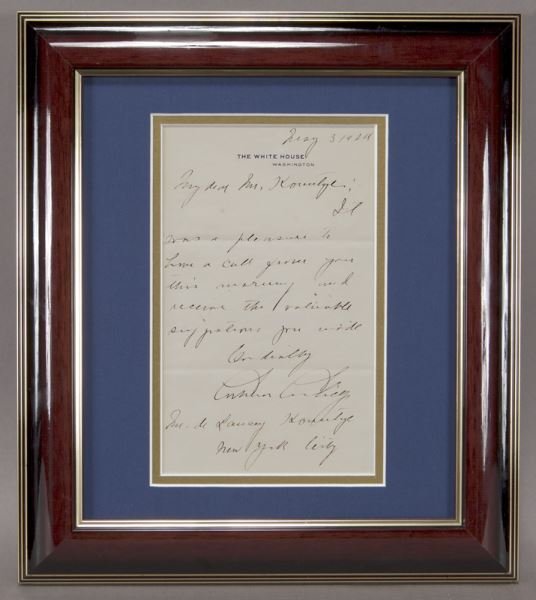 May 3 1924
THE WHITE HOUSE
WASHINGTON
My dear Mr. Kountze:
It
was a pleasure to
have a call from you
this morning and
receive the valuable
suggestions you made
Cordially
Calvin Coolidge
Mr. de Lancey Kountze
New York City